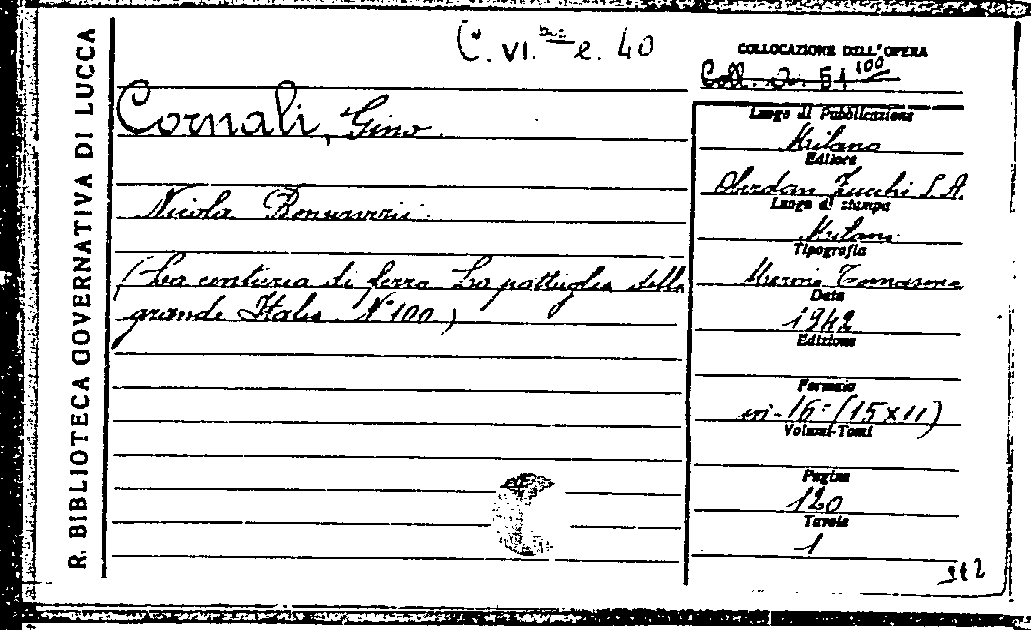 R. BIBLIOTECA GOVERNATIVA DI LUCCA
C. VI. bis e. 40
COLLOCAZIONE DELL'OPERA
Coll. 51 100
Cornali, Gino
Nicola
(La centuria di ferro La pattuglia della
grande Italia N° 100)
Luogo di Pubblicazione
Milano
Editore
Oberdan Zucchi S.A.
Luogo di stampa
Milano
Tipografia
Data
1942
Edizione
Formato
in-16° (15x11)
Volumi-Tomi
Pagine
120
Tavole
1